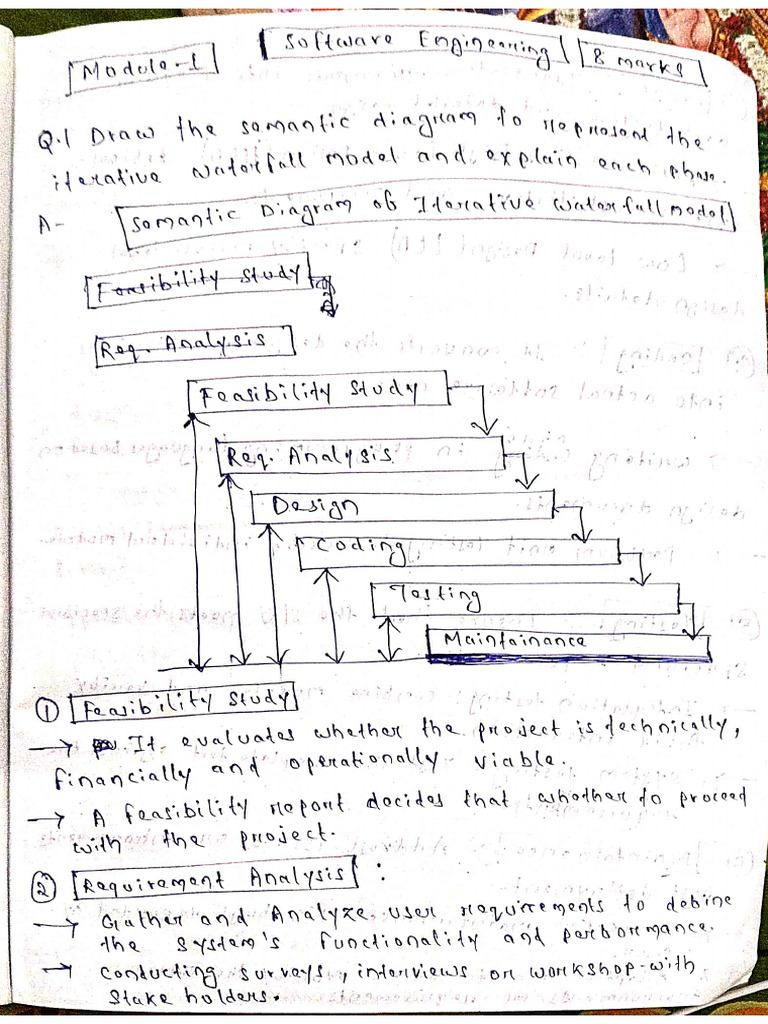 Module-1
Software Engineering
8 marks
Q.1 Draw the semantic diagram to represent the
iterative waterfall model and explain each phase.
A- Semantic Diagram of Iterative waterfall model
Feasibility Study
Req. Analysis
Feasibility Study
Req. Analysis
Design
Coding
Testing
Maintainance
① Feasibility Study
→ It evaluates whether the project is technically,
financially and operationally viable.
→ A feasibility report decides that whether to proceed
with the project.
② Requirement Analysis :
→ Gather and Analyze user requirements to define
the system's functionality and performance.
→ conducting surveys, interviews or workshop with
stake holders.